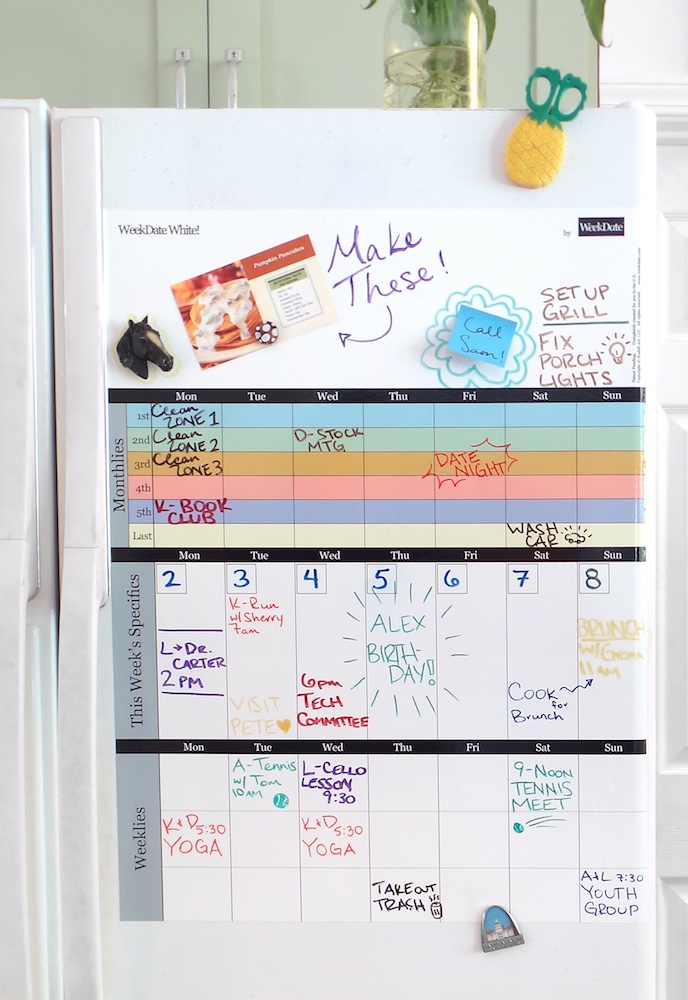 WeekDate White!
by WeekDate
Pumpkin Pancakes
Make
These!
Call
Sam!
SET UP
GRILL
FIX
PORCH
LIGHTS
Mon Tue Wed Thu Fri Sat Sun
Monthlies
1st Clean ZONE 1
2nd Clean ZONE 2 D-STOCK MTG
3rd Clean ZONE 3 DATE NIGHT
4th
5th K-BOOK CLUB
Last WASH CAR
Mon Tue Wed Thu Fri Sat Sun
This Week's Specifics
2 3 4 5 6 7 8
L→DR.
CARTER
2 PM
K-Run
w/ Sherry
7am
VISIT
PETE
6pm
TECH
COMMITTEE
ALEX
BIRTH-
DAY!!
Cook
for
Brunch
BRUNCH
W/
11 AM
Mon Tue Wed Thu Fri Sat Sun
Weeklies
A-Tennis
w/ Tom
10AM
L-CELLO
LESSON
9:30
9-NOON
TENNIS
MEET
K+D 5:30
YOGA
K+D 5:30
YOGA
TAKE OUT
TRASH
A+L 7:30
YOUTH
GROUP